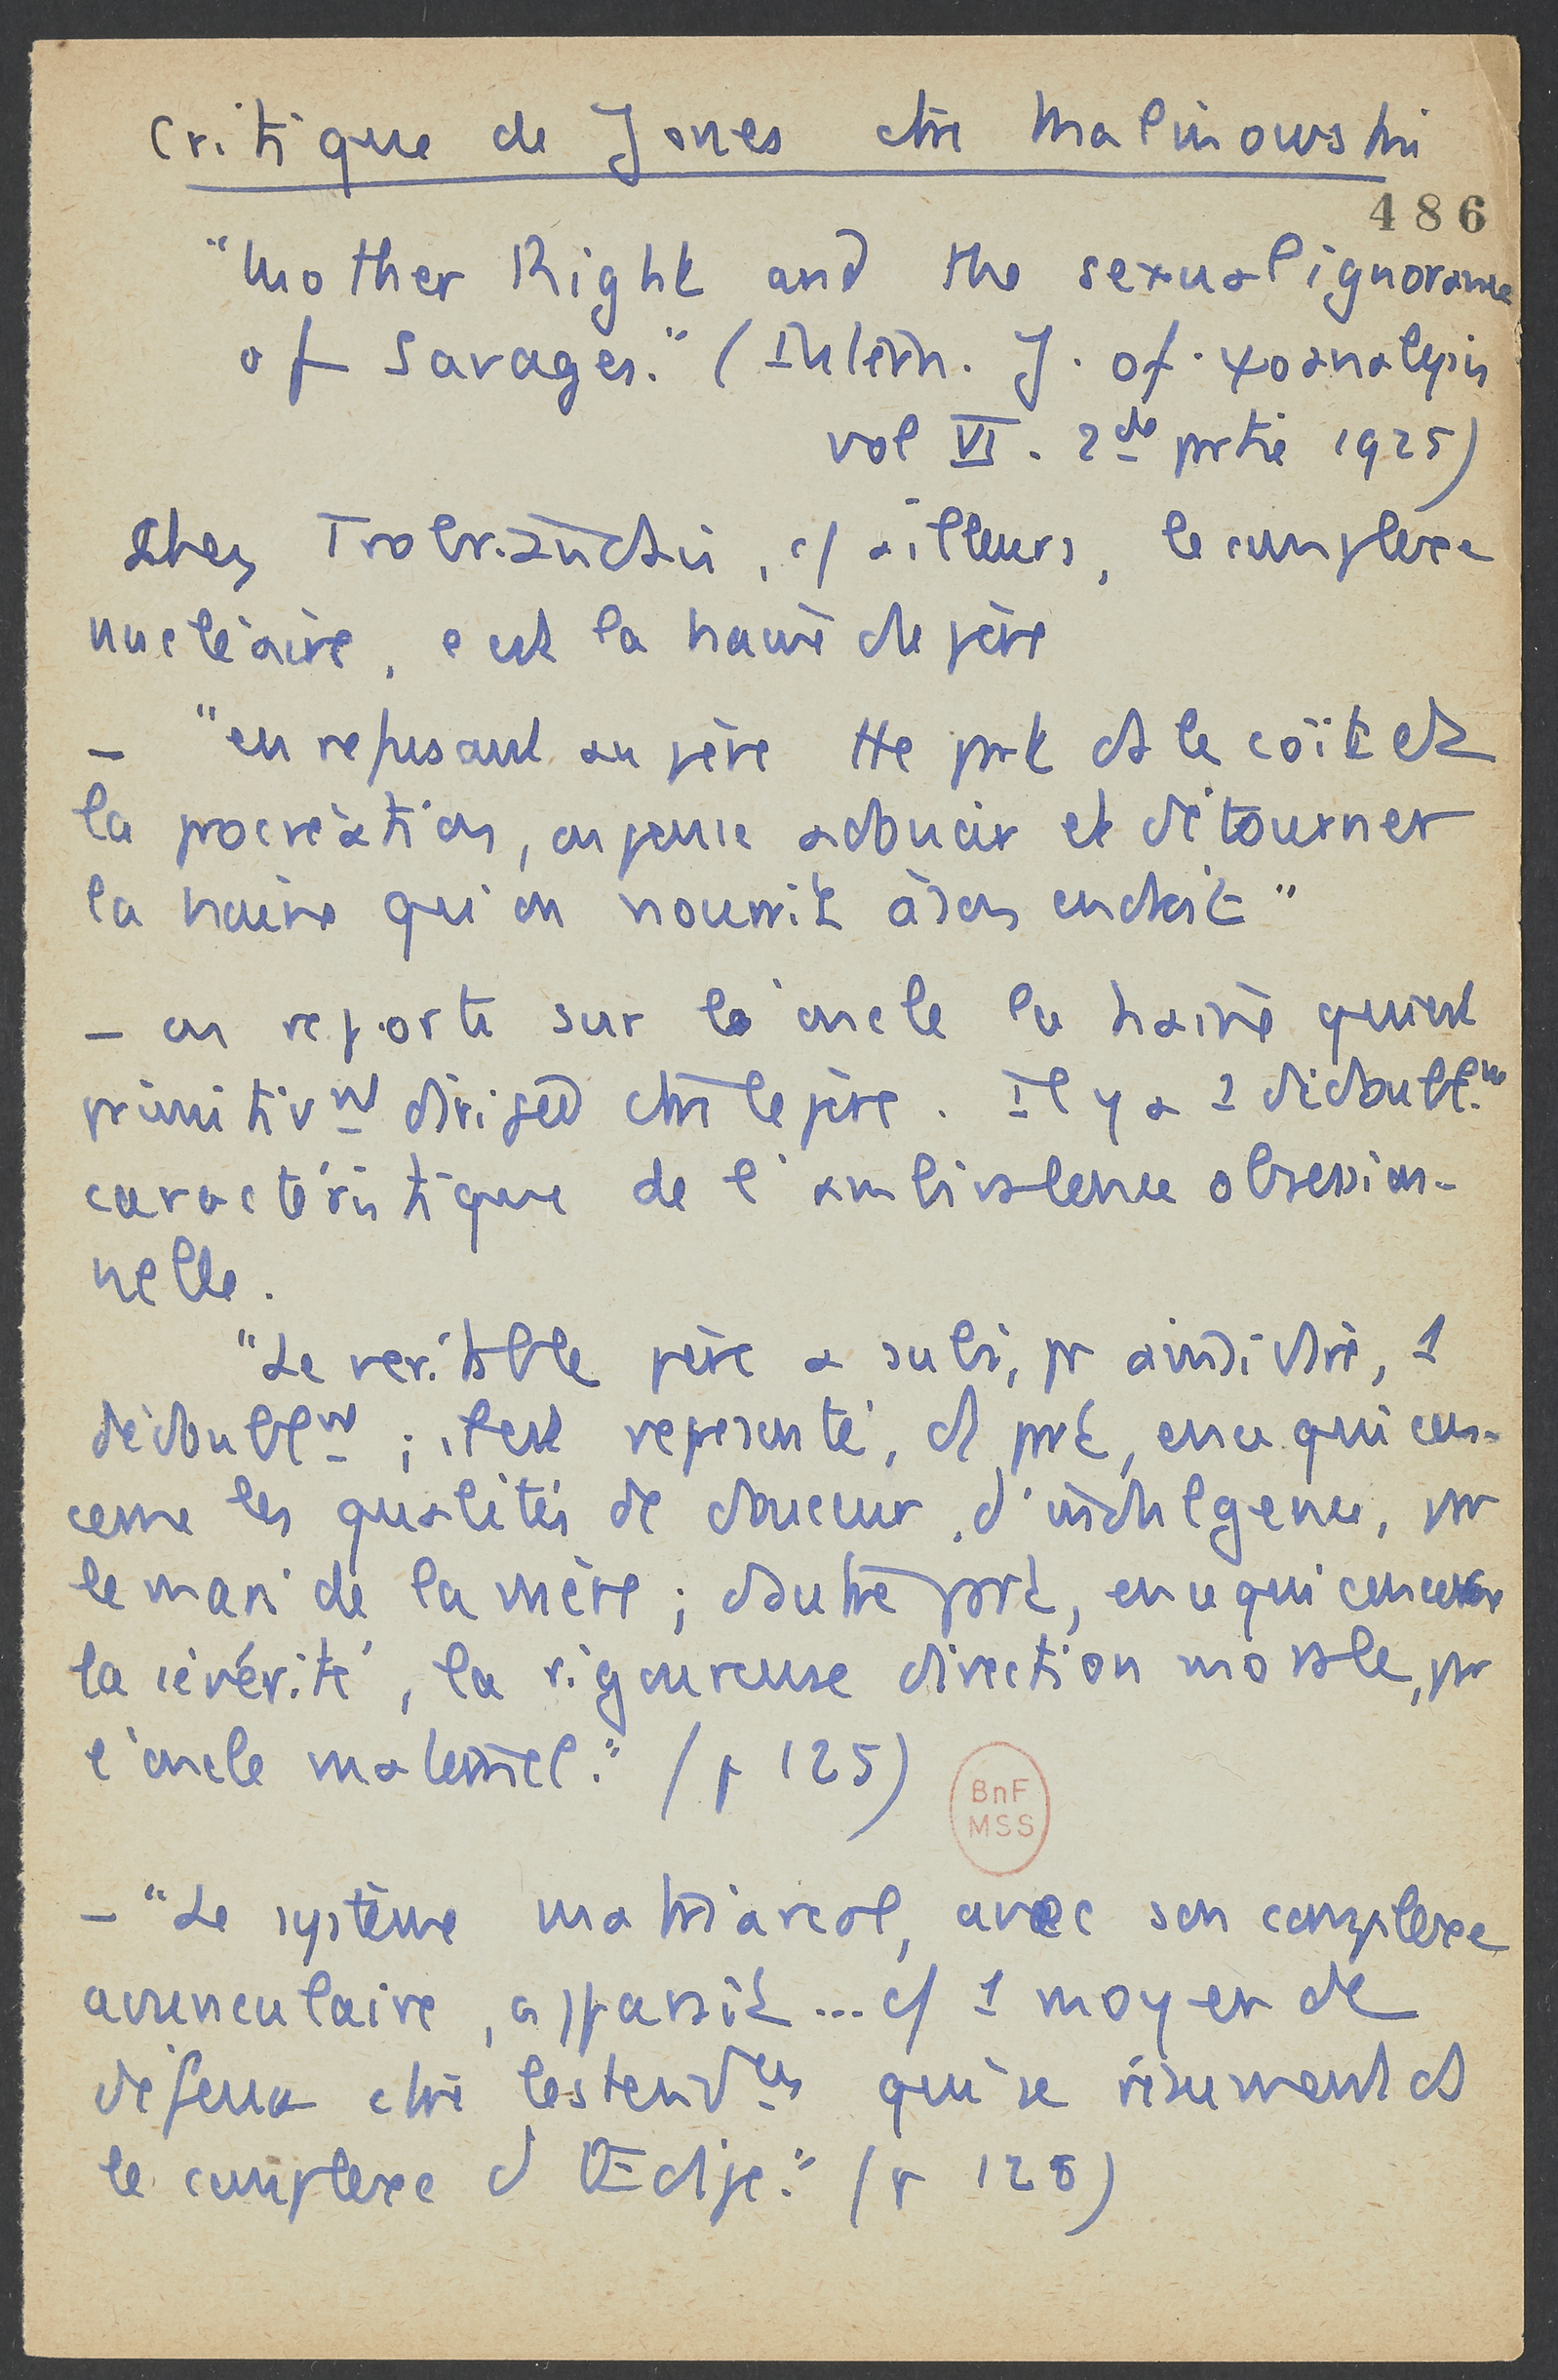 Critique de Jones ctre Malinowski
486
"Mother Right and the sexual ignorance
of Savages." (Intern. J. of ψoanalysis
vol VI. 2de partie 1925)
Chez Trobriandais, c/ ailleurs, le complexe
nucléaire, c'est la haine du père
– "en refusant au père tte part ds le coït et
la procréation, on pense adoucir et détourner
la haine qu'on nourrit à son endroit"
– on reporte sur l'oncle la haine qui est
primitivnt dirigée ctre le père. Il y a 1 dédoublnt
caractéristique de l'ambivalence obsession-
nelle.
"Le véritable père a subi, pr ainsi dire, 1
dédoublnt ; il est représenté, d'1 part, en ce qui con-
cerne les qualités de douceur, d'indulgence, par
le mari de la mère ; d'autre part, en ce qui concerne
la sévérité, la rigoureuse direction morale, par
l'oncle maternel." (p 125)
BnF
MSS
– "Le système matriarcal, avec son complexe
avunculaire, apparaît ... c/ 1 moyen de
défense ctre les tendces qui se résument ds
le complexe d'Œdipe." (p 128)